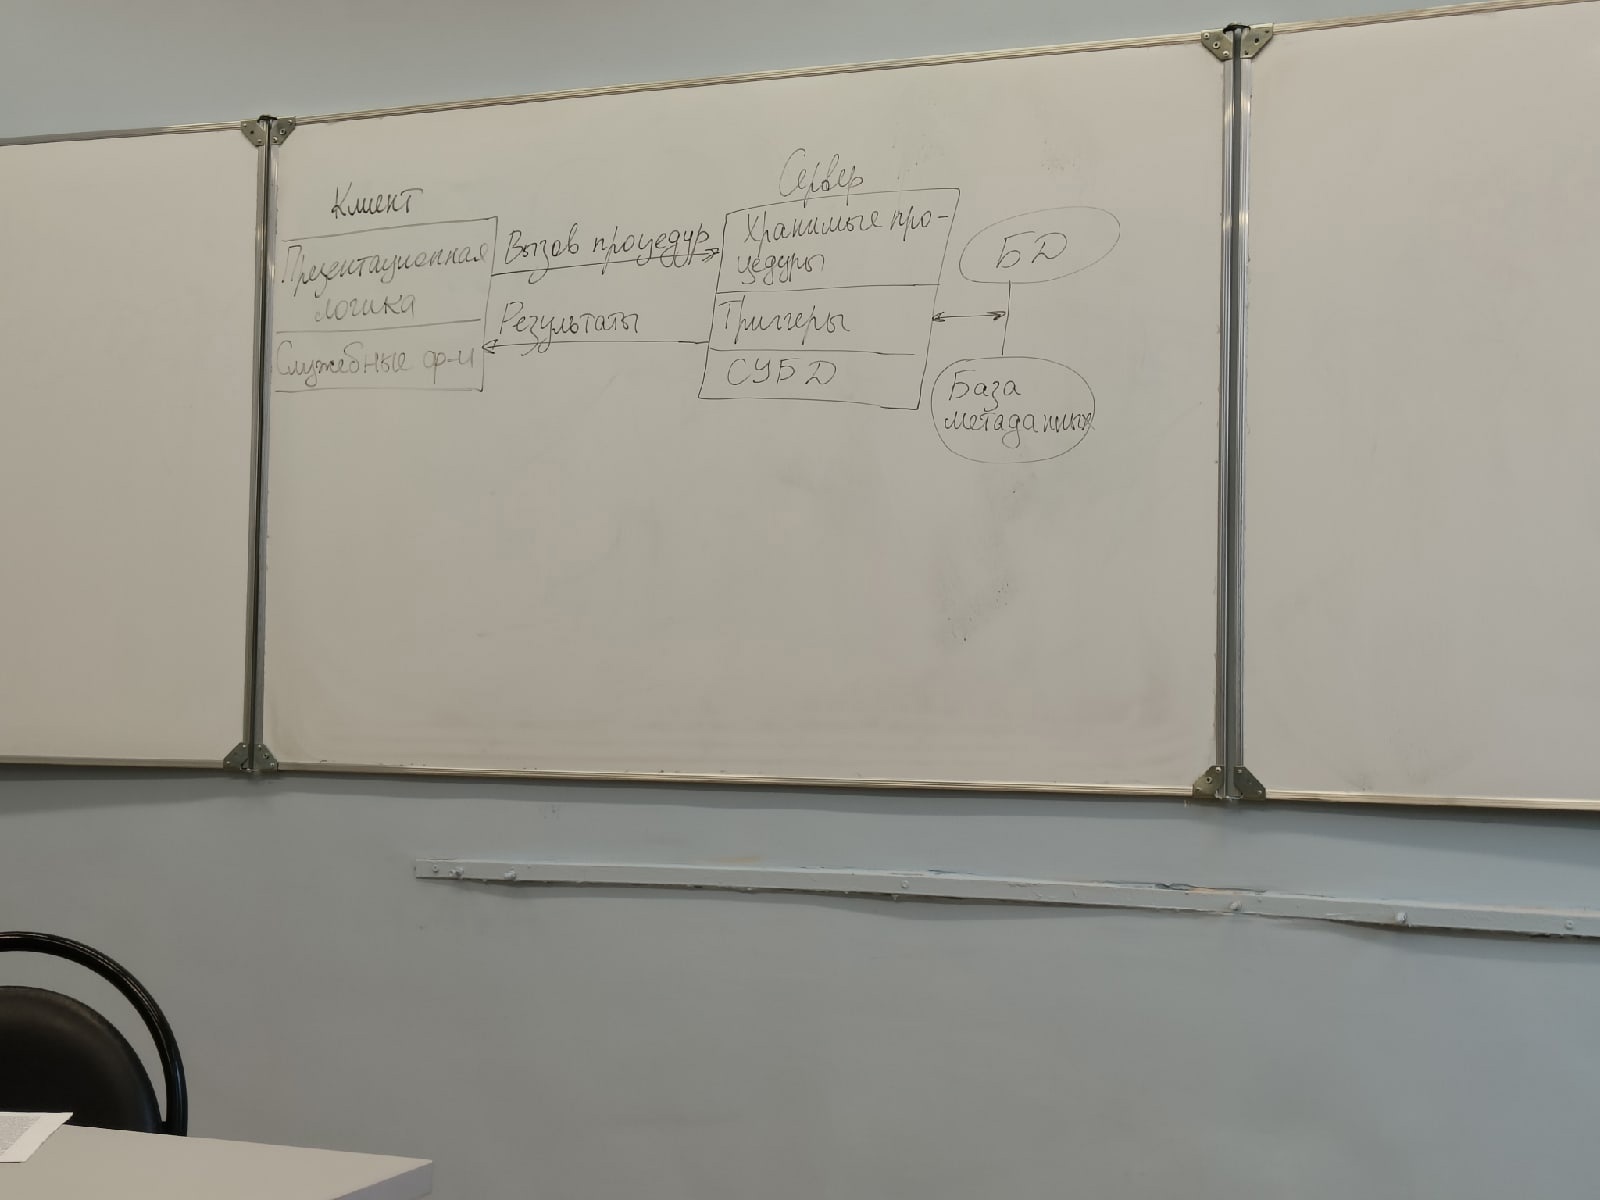 Клиент
Презентационная
логика
Служебные ф-и
Вызов процедур
Результаты
Сервер
Хранимые про-
цедуры
Триггеры
СУБД
БД
База
метаданных